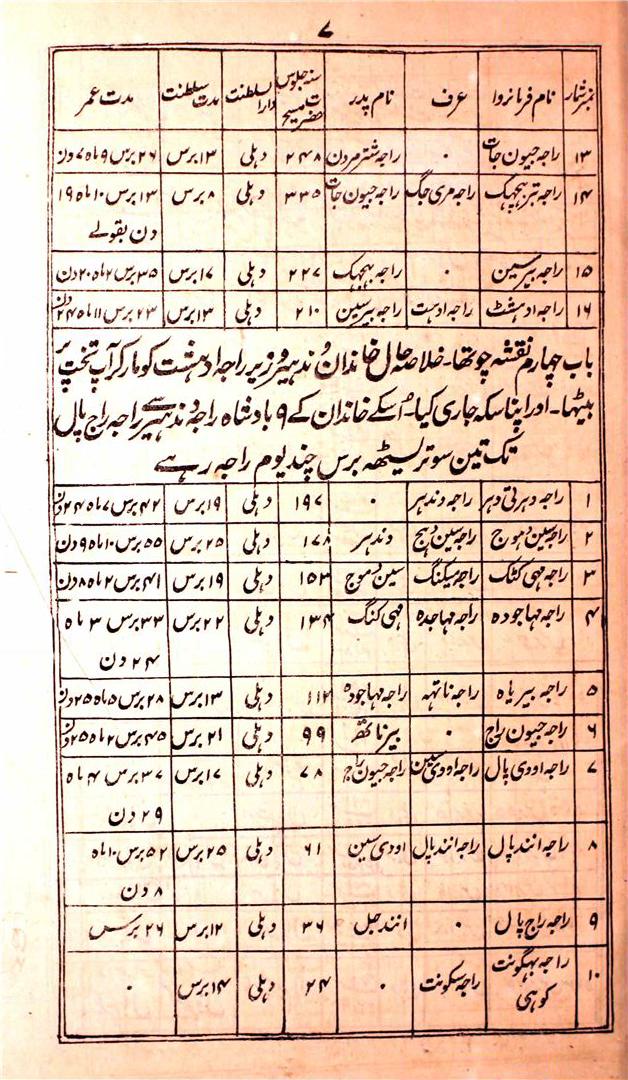 ۷
نمبر شمار | نام فرمانروا | عرف | نام پدر | سنہ جلوس حضرت مسیح | دارالسلطنت | مدت سلطنت | مدت عمر
۱۳ | راجہ جیون جات | ۰ | راجہ شتر مردن | ۲۴۸ | دہلی | ۱۳ برس | ۲۶ برس ۹ ماہ ۷ دن
۱۴ | راجہ | راجہ مری جگ | راجہ جیون جات | ۳۳۵ | دہلی | ۸ برس | ۱۳ برس ۱۰ ماہ ۱۹
دن بقولے
۱۵ | راجہ بیر سین | ۰ | راجہ | ۲۲۷ | دہلی | ۱۷ برس | ۳۵ برس ۲ ماہ ۲۰ دن
۱۶ | راجہ ادہشٹ | راجہ ادہست | راجہ بیر سین | ۲۱۰ | دہلی | ۱۳ برس | ۲۳ برس ۱۱ ماہ ۲۴ دن
باب چہارم نقشہ چوتھا۔ خلاصہ حال خاندان وندہیر وزیر راجہ ادہشت کو مار کر آپ تخت پر
بیٹھا۔ اور اپنا سکہ جاری کیا۔ اسکے خاندان کے ۹ بادشاہ راجہ وندہیر سے راجہ راج پال
تک تین سو تریسٹھ برس چند یوم راجہ رہے
۱ | راجہ دہرتی دہر | راجہ دندہر | ۰ | ۱۹۷ | دہلی | ۱۹ برس | ۴۲ برس ۷ ماہ ۲۴ دن
۲ | راجہ سین دہوج | راجہ سین دہج | دندہر | ۱۷۸ | دہلی | ۲۵ برس | ۵۵ برس ۱۰ ماہ ۹ دن
۳ | راجہ مہی کٹک | راجہ میکنگ | سین دہوج | ۱۵۳ | دہلی | ۱۹ برس | ۴۱ برس ۲ ماہ ۸ دن
۴ | راجہ مہاجودہ | راجہ مہاجدہ | مہی کنگ | ۱۳۴ | دہلی | ۲۲ برس | ۳۳ برس ۳ ماہ
۲۴ دن
۵ | راجہ بیریاہ | راجہ ناتہہ | راجہ مہاجودہ | ۱۱۲ | دہلی | ۱۳ برس | ۲۸ برس ۵ ماہ ۲۵ دن
۶ | راجہ جیون راج | ۰ | بیرناتھ | ۹۹ | دہلی | ۲۱ برس | ۴۵ برس ۲ ماہ ۲۵ دن
۷ | راجہ اودی پال | راجہ اودی سین | راجہ جیون راج | ۷۸ | دہلی | ۱۷ برس | ۳۷ برس ۴ ماہ
۲۹ دن
۸ | راجہ انند پال | راجہ انند پال | اودی سین | ۶۱ | دہلی | ۲۵ برس | ۵۲ برس ۱۰ ماہ
۸ دن
۹ | راجہ راج پال | ۰ | انند جل | ۳۶ | دہلی | ۱۲ برس | ۲۶ برس
۱۰ | راجہ بھگونت | راجہ سکونت | ۰ | ۲۴ | دہلی | ۱۴ برس | ۰
کوہی